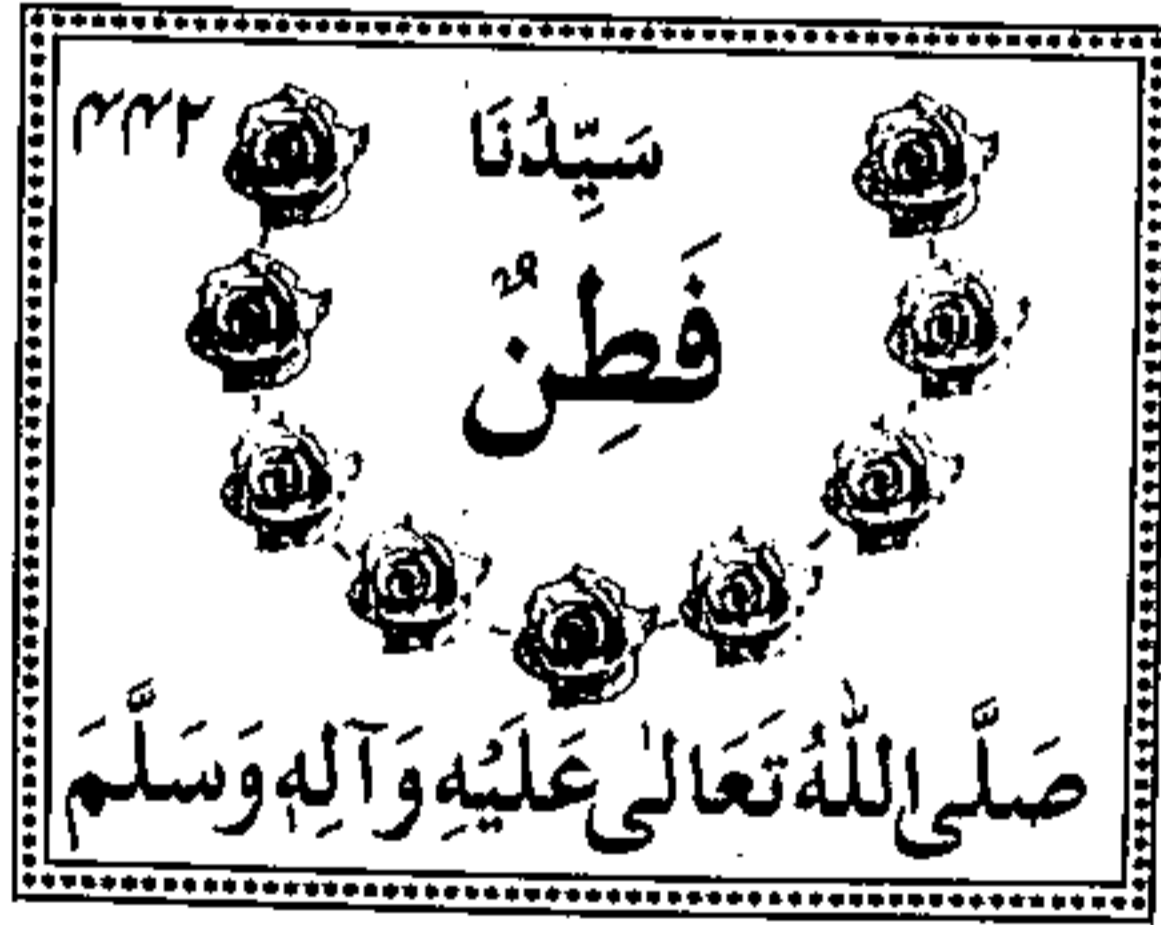 سَيِّدُنَا ۴۴۲
فَطِنٌ
صَلَّى اللّٰهُ تَعَالٰى عَلَيْهِ وَآلِهٖ وَسَلَّمَ